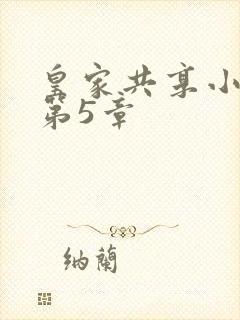 皇家共享小
第5章
纳蘭